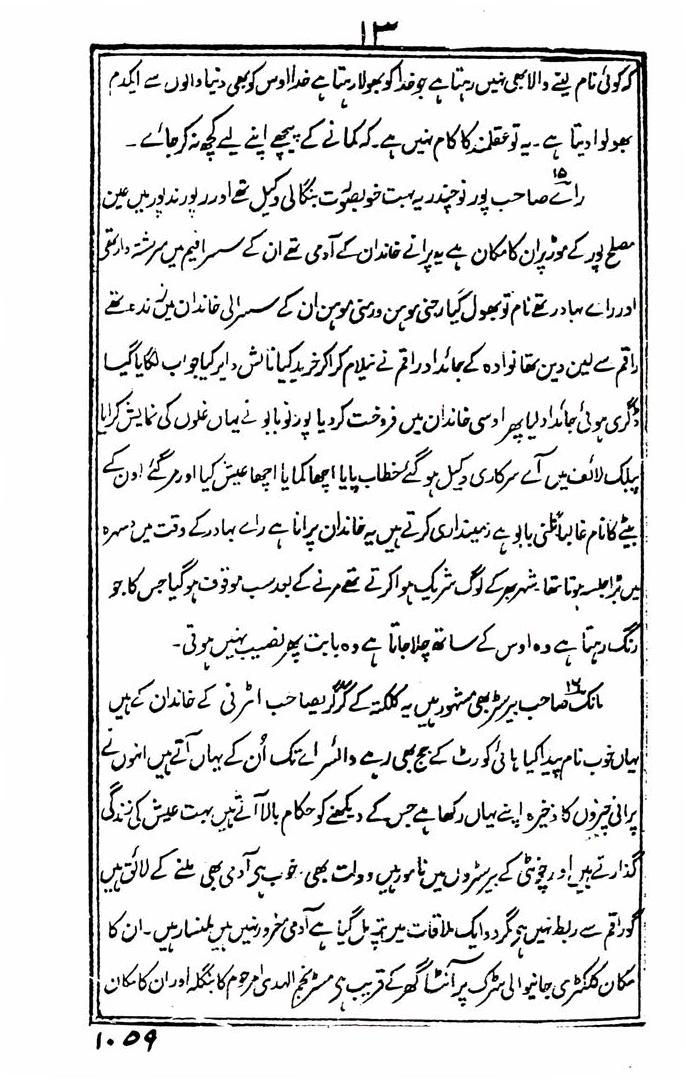 ۱۳
کہ کوئی نام لینے والا بھی نہیں رہتا ہے جو خدا کو بھولا رہتا ہے خدا اوس کو بھی دنیا والوں سے ایکدم
بھولوا دیتا ہے ۔ یہ تو عقلمند کا کام نہیں ہے ۔ کہ کمانے کے پیچھے اپنے لیے کچھ نہ کر جائے ۔
۱۵ رائے صاحب پورنو چندر یہ بہت خوبصورت بنگالی وکیل تھے اور عین
مصلح پور کے موڑ پر ان کا مکان ہے یہ پرانے خاندان کے آدمی تھے ان کے سسر افیم میں سرشتہ دار تھی
اور رائے بہادر تھے نام تو بھول گیا رجنی موہن ورمنی موہن ان کے سسرالی خاندان میں زندہ تھے
راقم سے لین دین تھا نوادہ کے جائداد راقم نے نیلام کرا کر خرید کیا نالش دایر کیا جواب لگایا گیا
ڈگری ہوئی جائداد لیا پھر اوسی خاندان میں فروخت کر دیا پورنو بابو نے یہاں غلوں کی نمایش کرایا
پبلک لائف میں آے سرکاری وکیل ہو گئے خطاب پایا اچھا کمایا اچھا عیش کیا اور مر گئے اون کے
بیٹے کا نام غالباً نلنی بابو ہے زمینداری کرتے ہیں یہ خاندان پرانا ہے راے بہادر کے وقت میں دسہرہ
میں بڑا جلسہ ہوتا تھا شہر بھر کے لوگ شریک ہوا کرتے تھے مرنے کے بعد سب موقوف ہو گیا جس کا جو
رنگ رہتا ہے وہ اوس کے ساتھ چلا جاتا ہے وہ بابت پھر نصیب نہیں ہوتی ۔
۱۶ مانک صاحب بیرسٹر بھی مشہور ہیں یہ کلکتہ کے صاحب اٹرنی کے خاندان کے ہیں
یہاں خوب نام پیدا کیا ہائی کورٹ کے جج بھی رہے وائسراے تک اُن کے یہاں آتے ہیں انہوں نے
پرانی چیزوں کا ذخیرہ اپنے یہاں رکھا ہے جس کے دیکھنے کو حکام بالا آتے ہیں بہت عیش کی زندگی
گذارتے ہیں اور چوٹی کے بیرسٹروں میں نامور ہیں دولت بھی خوب ہی آدمی بھی ملنے کے لائق ہیں
گو راقم سے ربط نہیں ہے مگر دو ایک ملاقات میں پتہ مل گیا ہے آدمی مغرور نہیں ہیں ملنسار ہیں ۔ ان کا
مکان کلکٹری جانیوالی سڑک پر آنٹا گھر کے قریب ہی مسٹر نجم الہدیٰ مرحوم کا بنگلہ اور ان کا مکان
۱۰۵۹